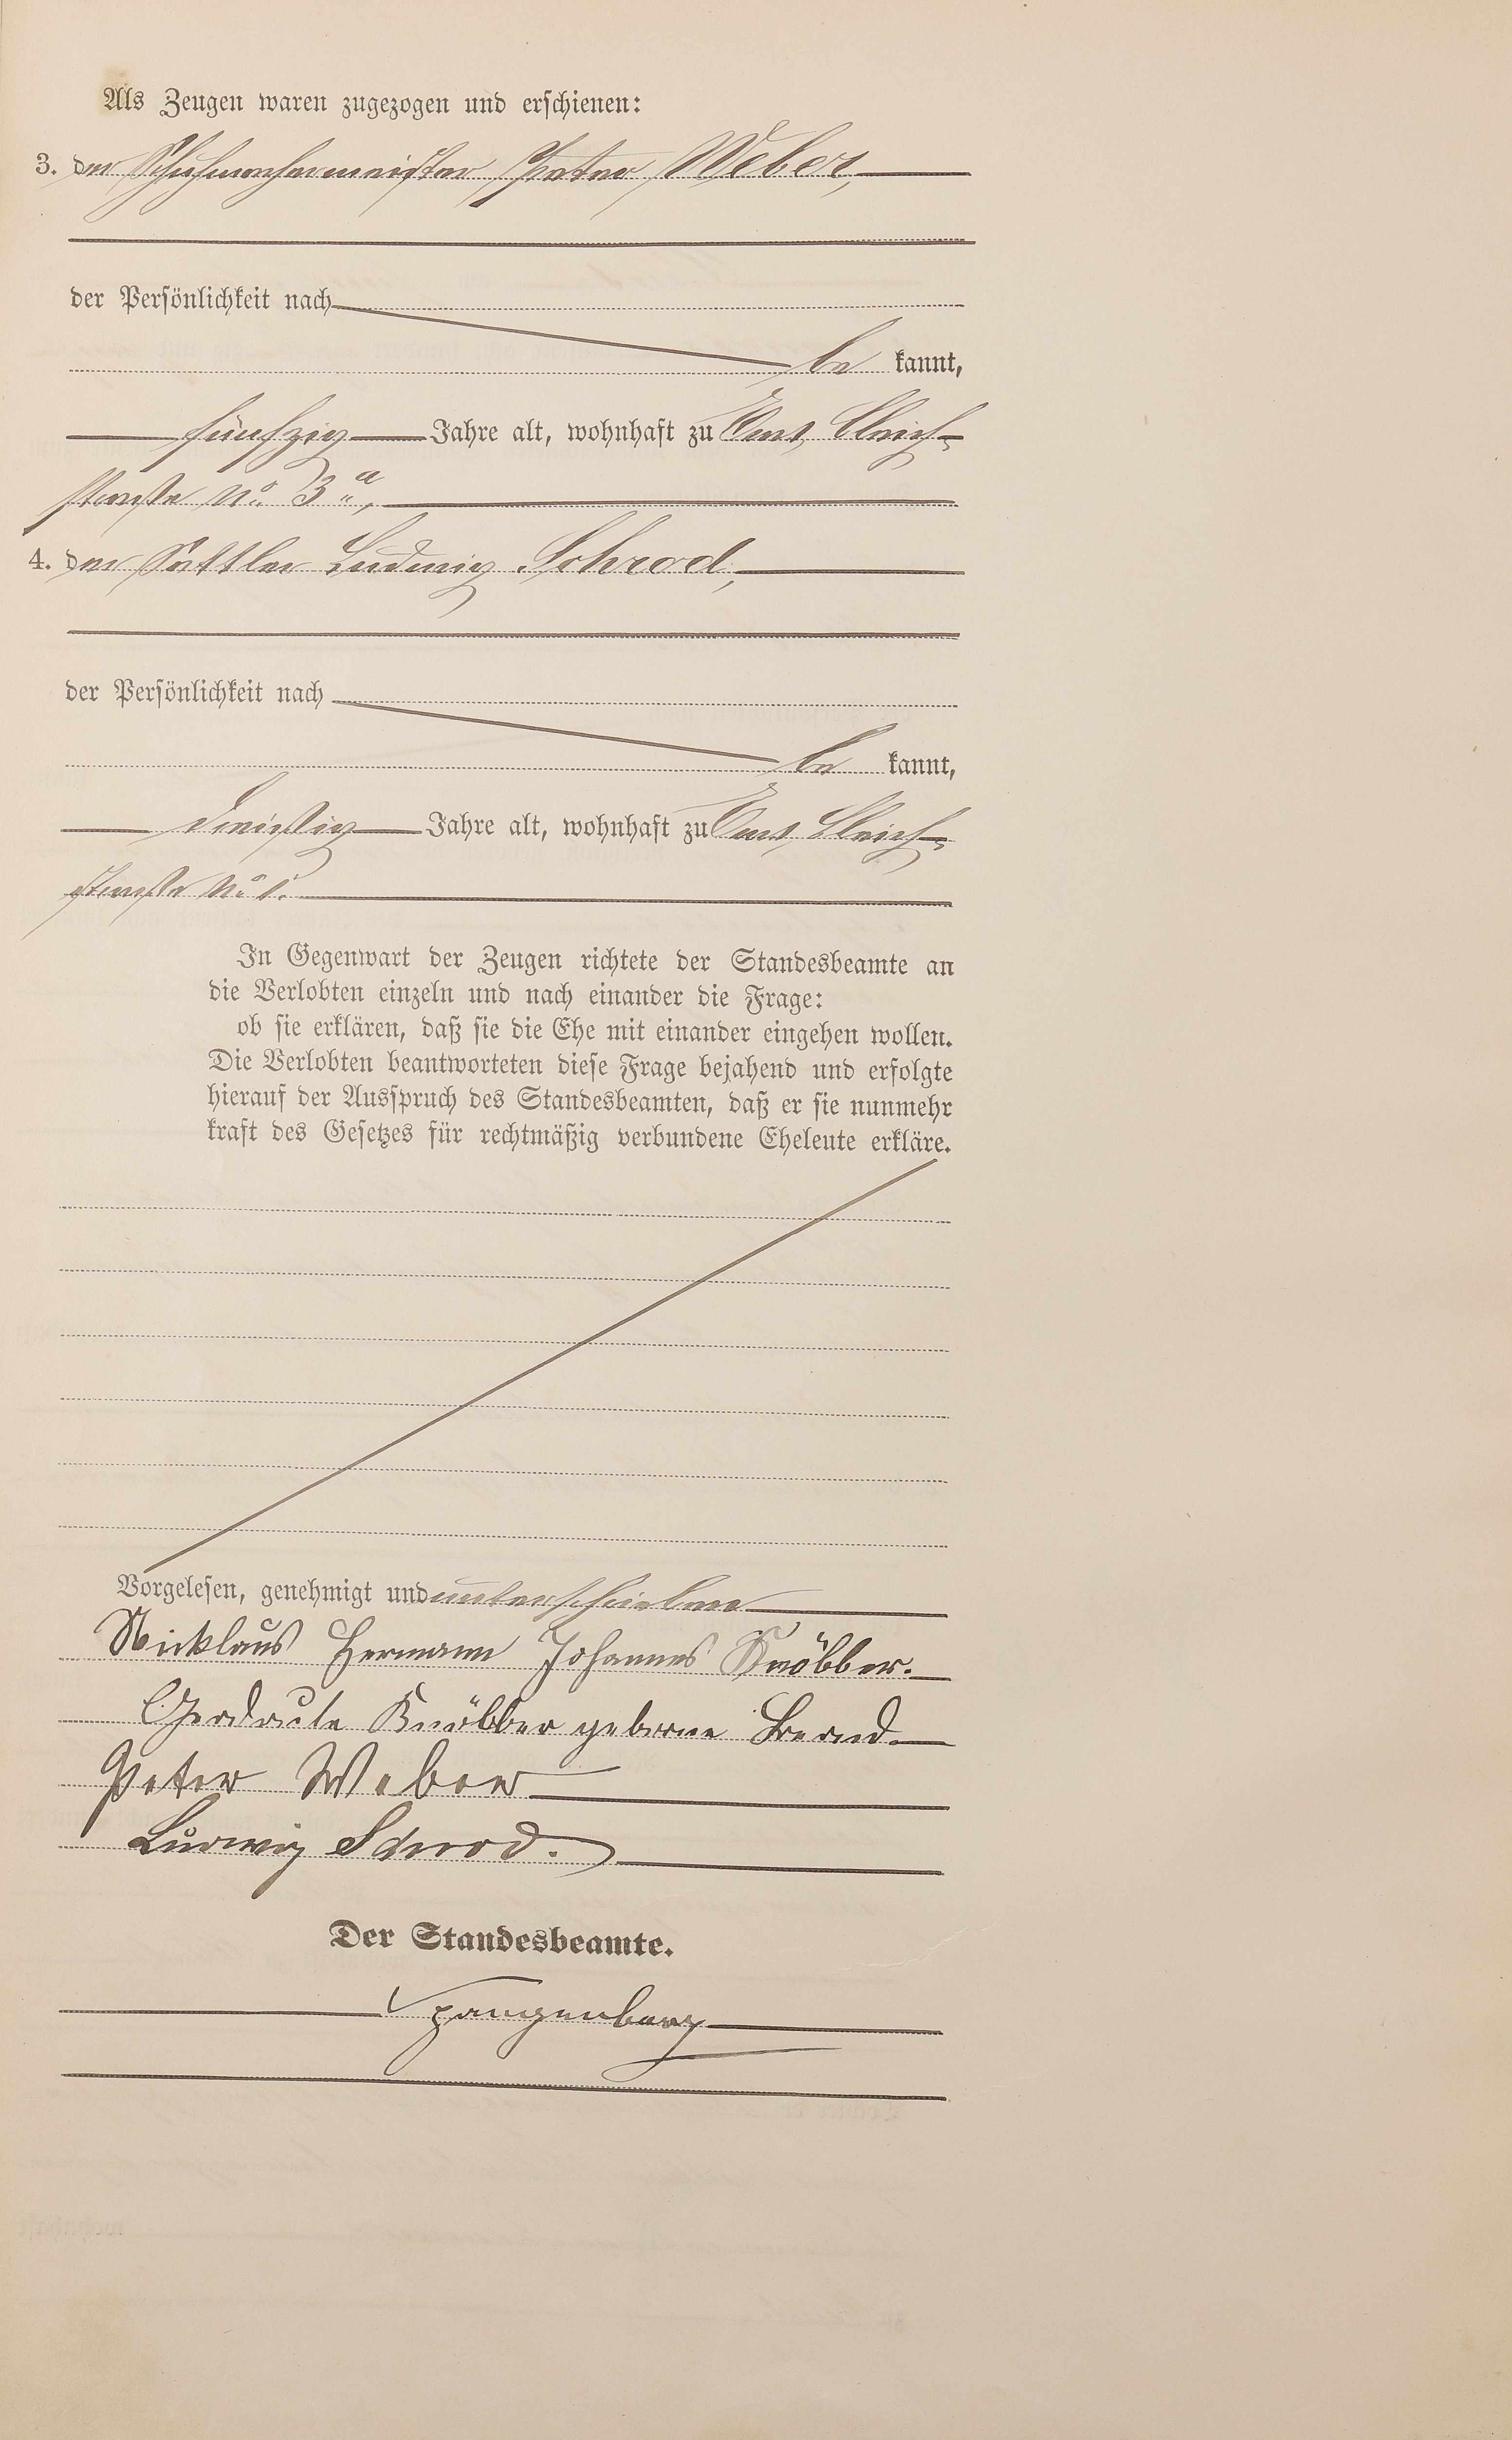 Als Zeugen waren zugezogen und erschienen:
3. der Schuhmachermeister Peter Weber,
der Persönlichkeit nach
be kannt,
fünfzig Jahre alt, wohnhaft zu Ems, Bleich-
straße No. 3a,
4. der Sattler Ludwig Schrod,
der Persönlichkeit nach
be kannt,
dreißig Jahre alt, wohnhaft zu Ems, Bleich-
straße No 1.
In Gegenwart der Zeugen richtete der Standesbeamte an
die Verlobten einzeln und nach einander die Frage:
ob sie erklären, daß sie die Ehe mit einander eingehen wollen.
Die Verlobten beantworteten diese Frage bejahend und erfolgte
hierauf der Ausspruch des Standesbeamten, daß er sie nunmehr
kraft des Gesetzes für rechtmäßig verbundene Eheleute erkläre.
Vorgelesen, genehmigt und unterschrieben
Nicklaus Hermann Johannes Knöbber.
Gerdrute Knöbber geborne Bernd
Peter Weber
Ludwig Schrod.
Der Standesbeamte.
Spangenberg